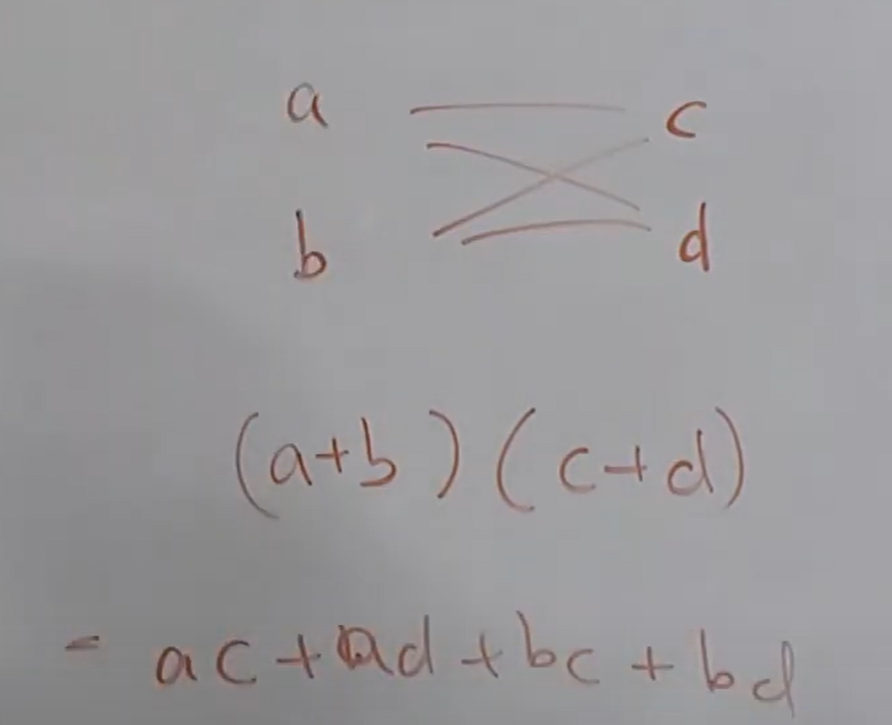 a c
b d
(a+b) (c+d)
= ac + ad + bc + bd